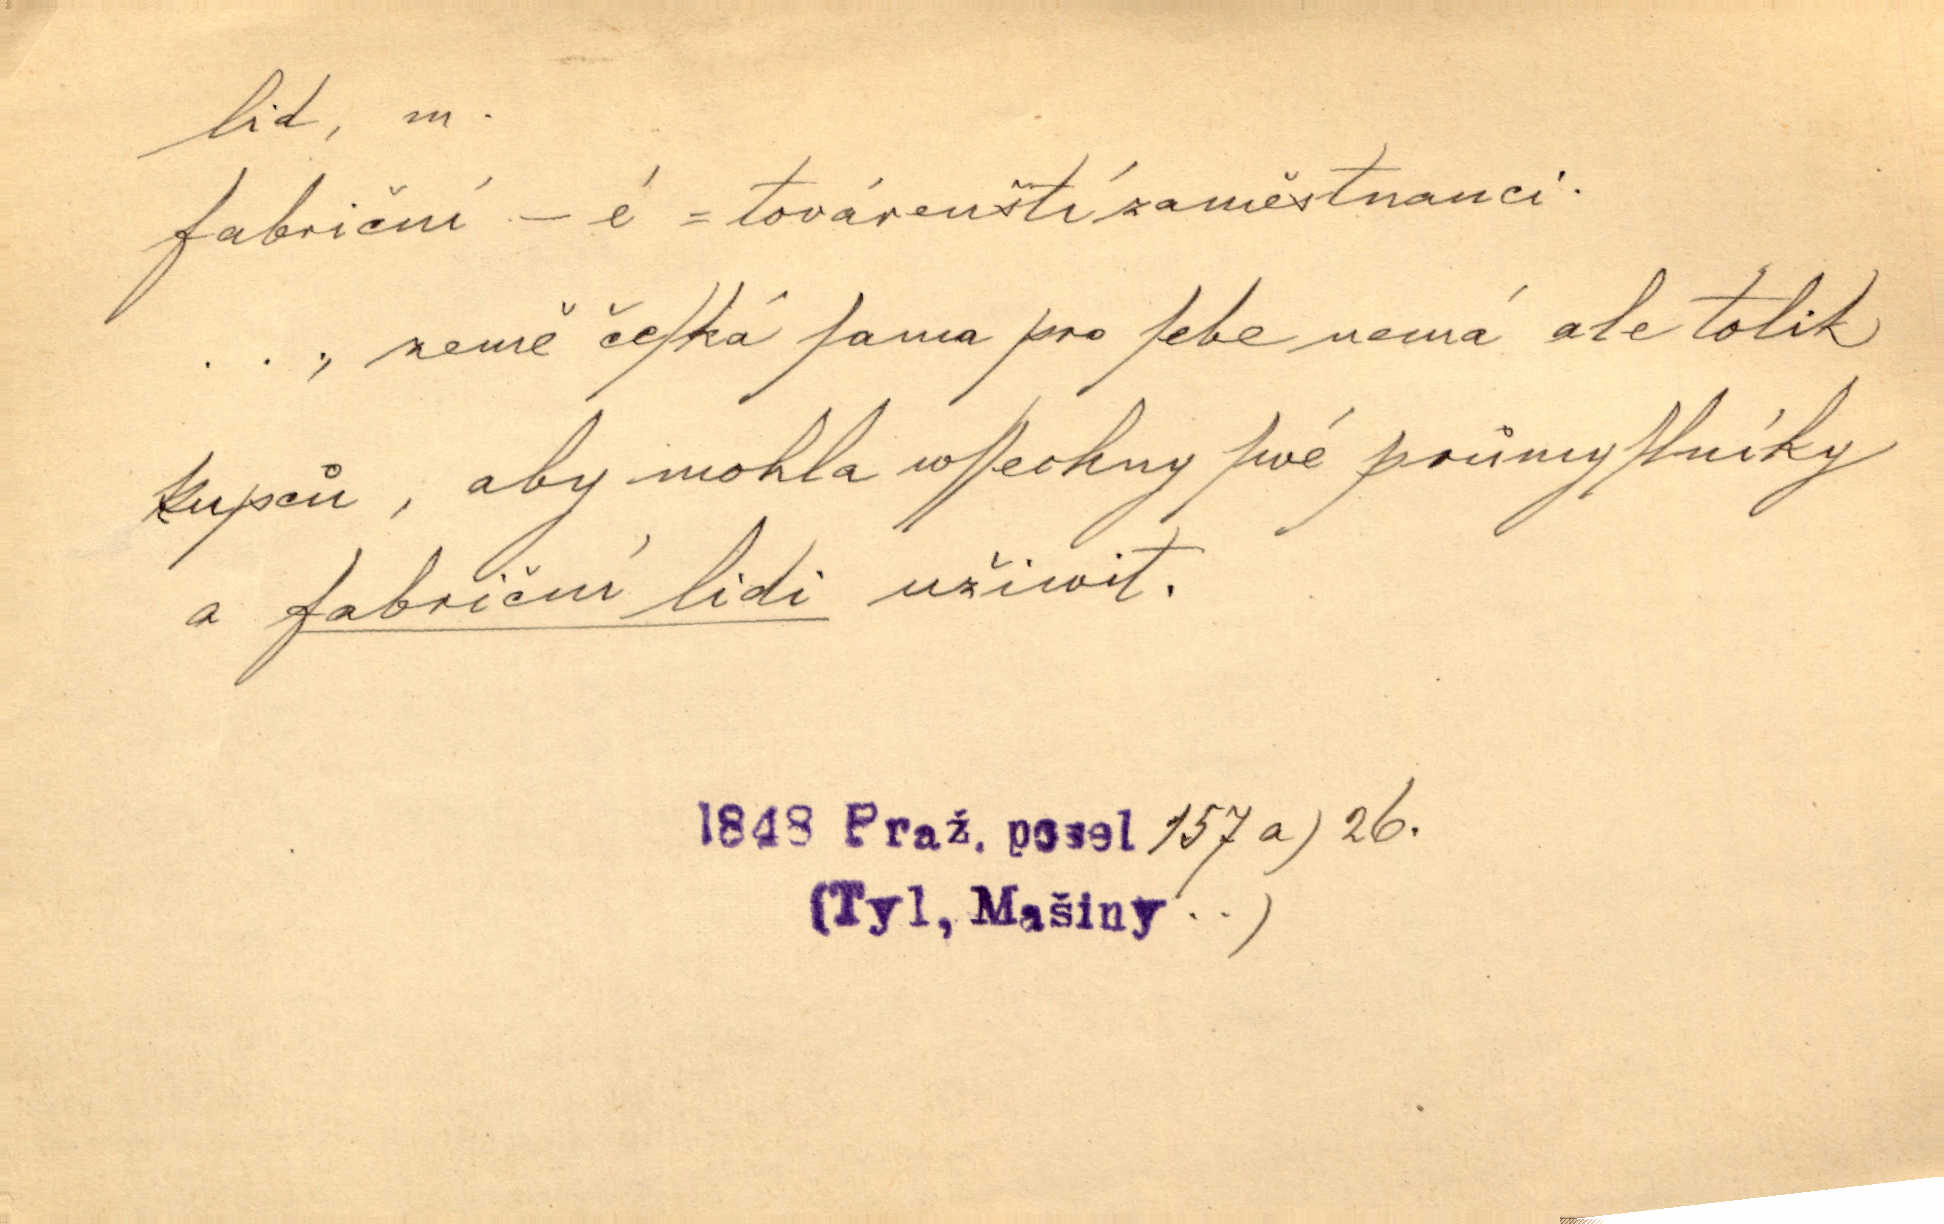 lid, m.
fabriční – é = továrenští zaměstnanci.
. . ., země čeſká ſama pro ſebe nemá ale tolik
kupců, aby mohla wſſechny ſwé průmyſlníky
a fabriční lidi užiwit.
1848 Praž. posel 157 a) 26.
(Tyl, Mašiny . . )